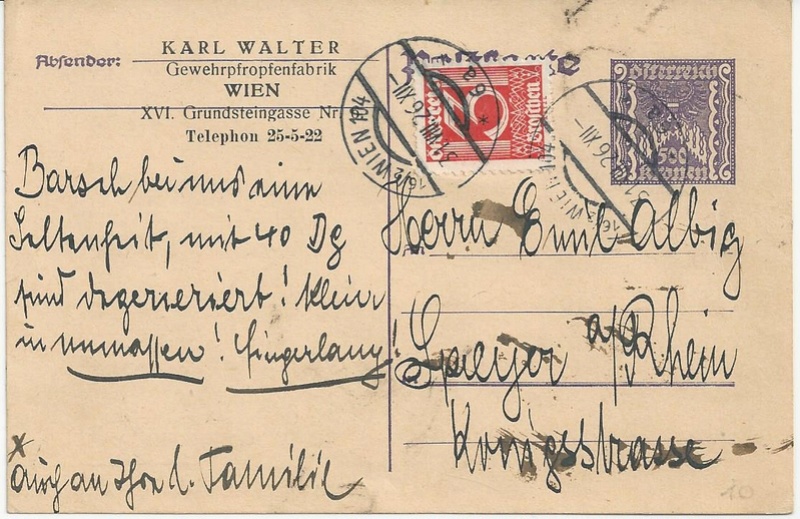 Absender:
KARL WALTER
Gewehrpfropfenfabrik
WIEN
XVI. Grundsteingasse Nr.
Telephon 25-5-22
Österreich
500
Kronen
Groschen
WIEN 104
26.XII
WIEN 104
26.XII
Barsch bei uns eine
Seltenheit, mit 40 Dg
sind degeneriert! Klein
in unmassen! fingerlang!
X
auch an Ihre l. Familie
Herrn Emil Albig
Speyer a/Rhein
Königsstrasse
10